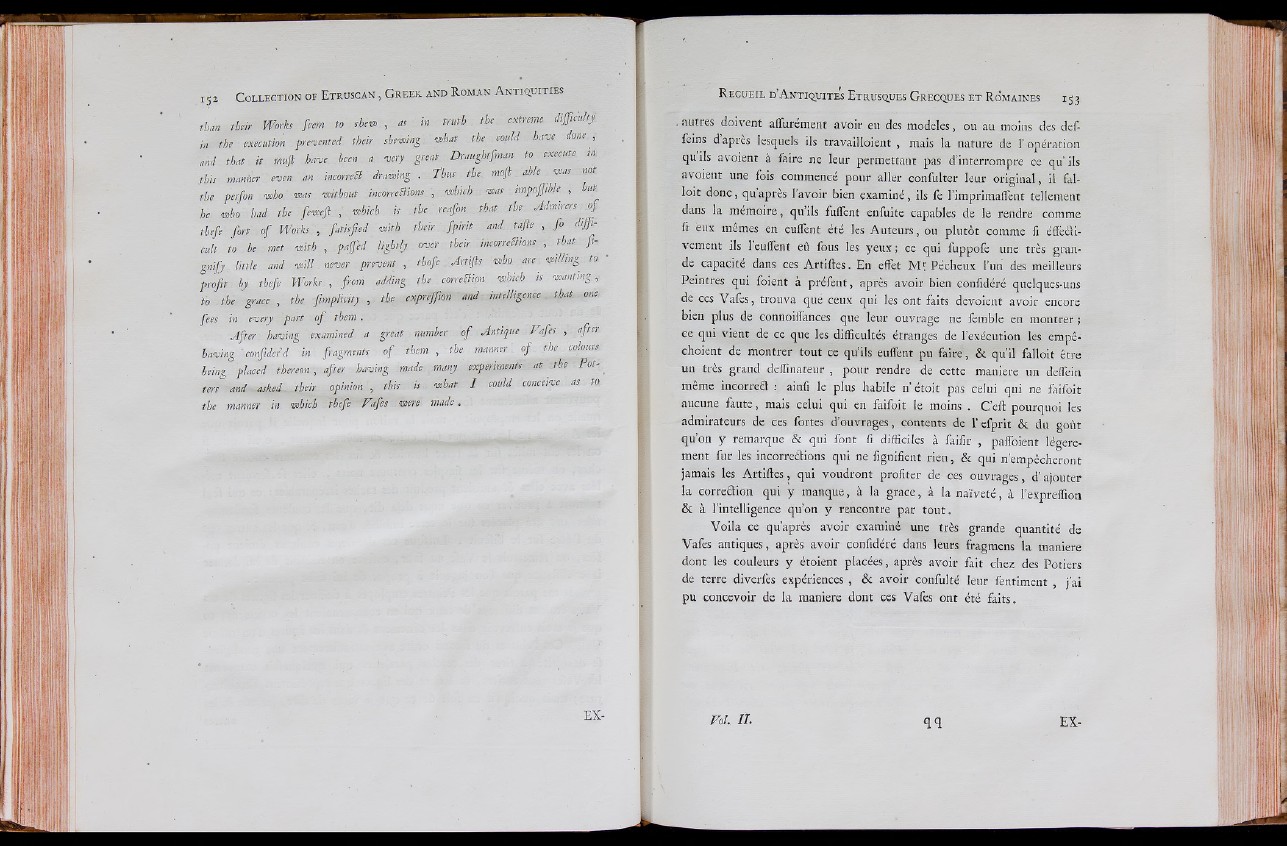 152 COLLECTION OF ETRUSCAN, GREEK AND ROMAN ANTIQUITIES
than their Works ſeem to shew , as in truth the extreme difficulty
in the execution prevented their shewing what the could have done ,
and that it muſt have been a very great Draughtſman to execute in
this manner even an incorrect drawing . Thus the moſt able was not
the perſon who was without incorrections , which was impoſſible , but
he who had the feweſt , which is the reaſon that the Admirers of
theſe ſort of Works , ſatisfied with their ſpirit and taſte , ſo diffi-
cult to be met with , paſſed lightly over their incorrections , that ſi-
gnify little and will never prevent , thoſe Artiſts who are willing to
profit by theſe Works , from adding the correction which is wanting ,
to the grace , the ſimplicity , the expreſſion and intelligence that one
ſees in every part of them .
After having examined a great number of Antique Vaſes , after
having conſider'd in fragments of them , the manner of the colours
being placed thereon , after having made many experiments at the Pot-
ters and asked their opinion , this is what I could conceive as to
the manner in which theſe Vaſes were made .
EX-
RECUEIL D'ANTIQUITÉS ETRUSQUES GRECQUES ET ROMAINES 153
autres doivent aſſurément avoir eu des modeles, ou au moins des deſ-
ſeins d'après lesquels ils travailloient , mais la nature de l' opération
qu'ils avoient à faire ne leur permettant pas d'interrompre ce qu' ils
avoient une fois commencé pour aller conſulter leur original, il fal-
loit donc, qu'après l'avoir bien examiné, ils ſe l'imprimaſſent tellement
dans la mémoire, qu'ils fuſſent enſuite capables de le rendre comme
ſi eux mêmes en euſſent été les Auteurs, ou plutôt comme ſi éffecti-
vement ils l'euſſent eû ſous les yeux; ce qui ſuppoſe une très gran-
de capacité dans ces Artiſtes. En effèt Mr Pécheux l'un des meilleurs
Peintres qui ſoient à préſent, après avoir bien conſidéré quelques-uns
de ces Vaſes, trouva que ceux qui les ont faits devoient avoir encore
bien plus de connoiſſances que leur ouvrage ne ſemble en montrer ;
ce qui vient de ce que les difficultés étranges de l'exécution les empê-
choient de montrer tout ce qu'ils euſſent pu faire, & qu'il falloit être
un très grand deſſinateur , pour rendre de cette maniere un deſſein
même incorrect : ainſi le plus habile n' étoit pas celui qui ne faiſoit
aucune faute, mais celui qui en faiſoit le moins . C'eſt pourquoi les
admirateurs de ces ſortes d'ouvrages, contents de l' eſprit & du goût
qu'on y remarque & qui ſont ſi difficiles à ſaiſir , paſſoient légere-
ment ſur les incorrections qui ne ſignifient rien, & qui n'empêcheront
jamais les Artiſtes, qui voudront profiter de ces ouvrages, d' ajouter
la correction qui y manque, à la grace, à la naïveté, à l'expreſſion
& à l'intelligence qu'on y rencontre par tout.
Voila ce qu'aprés avoir examiné une très grande quantité de
Vaſes antiques, après avoir conſidéré dans leurs fragmens la maniere
dont les couleurs y étoient placées, après avoir fait chez des Potiers
de terre diverſes expériences , & avoir conſulté leur ſentiment , j'ai
pu concevoir de la maniere dont ces Vaſes ont été faits.
Vol. II. qq EX-